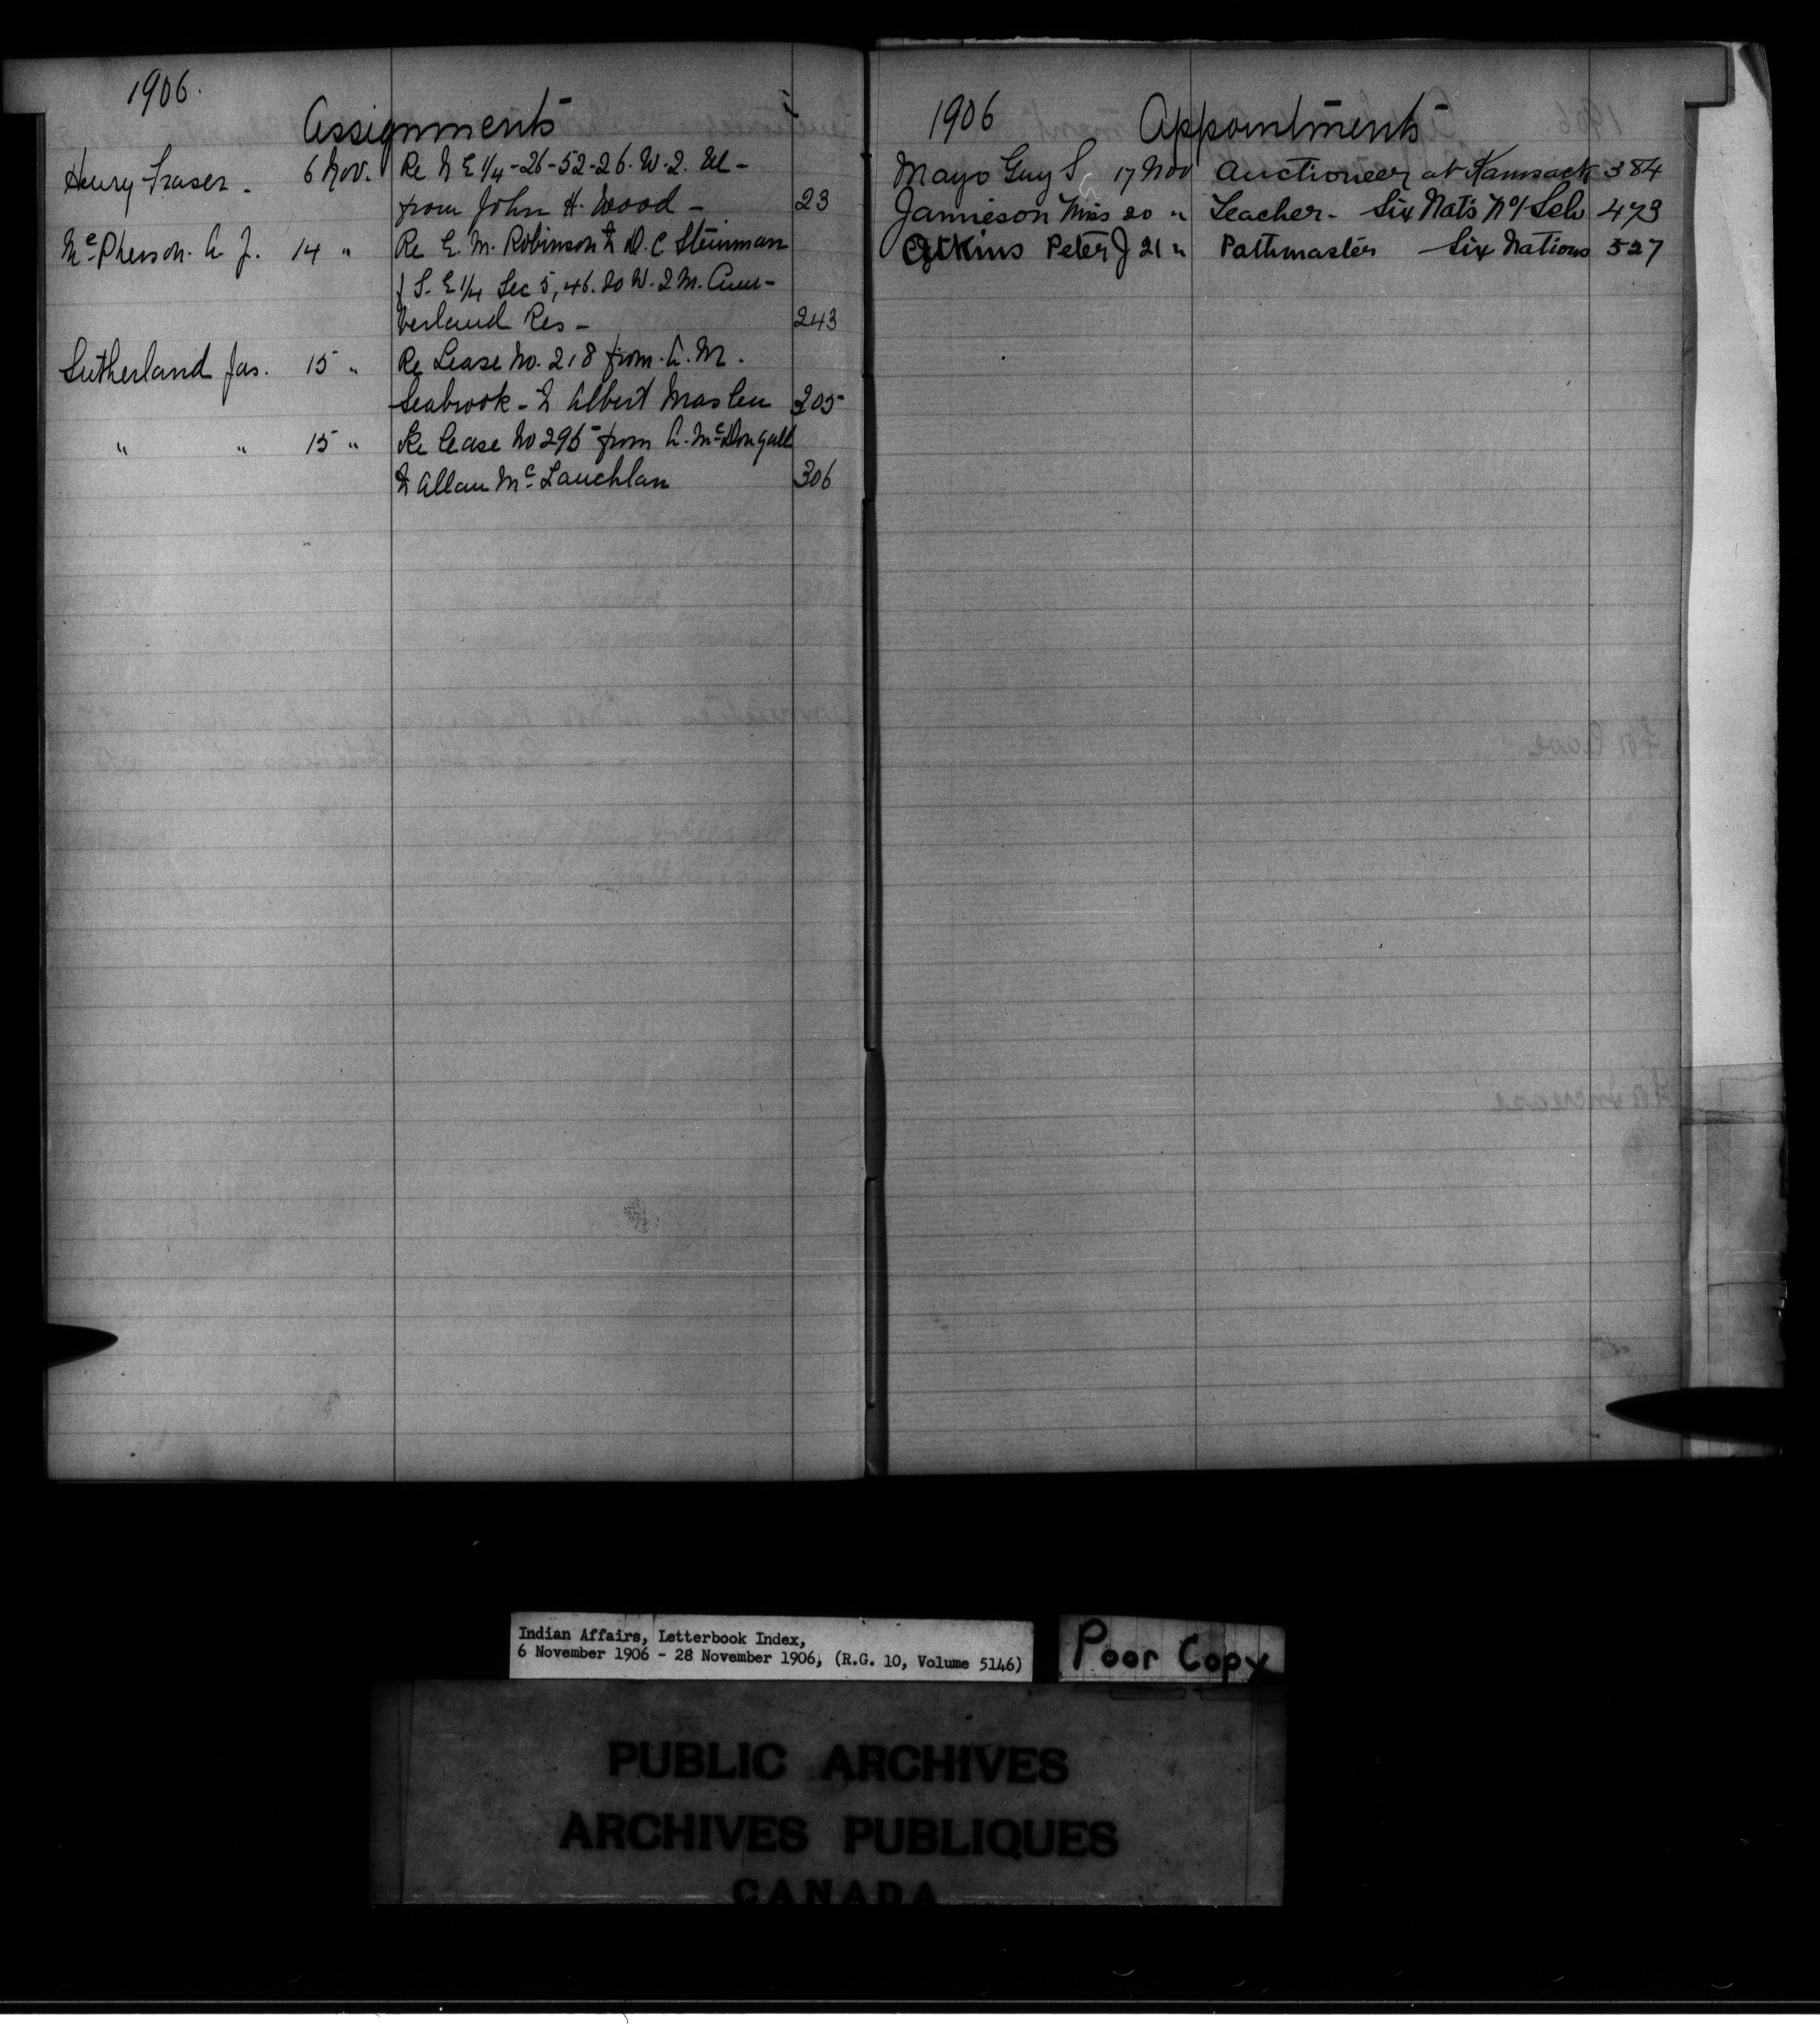 1906.
Assignments
Henry Fraser - 6 Nov. Re N E 1/4-26-52-26. W. 2. M -
from John H. Wood - 23
McPherson. A J. 14 " Re E. M. Robinson to D. C Steinman
of S. E 1/4 Sec 5, 46. 20 W. 2 M. Cum-
berland Res - 243
Sutherland Jas. 15 " Re Lease No. 218 from A. M.
Seabrook - to Albert Maslen 305
" " 15 " Re Lease No 295 from A. McDougall
to Allan McLauchlan 306
1906 Appointments
Mayo Guy S 17 Nov Auctioneer at Kamsack 384
Jamieson Miss 20 " Teacher - Six Nats No 1 Sch 473
Atkins Peter J 21 " Pathmaster Six Nations 527
Indian Affairs, Letterbook Index,
6 November 1906 - 28 November 1906, (R.G. 10, Volume 5146)
Poor Copy
PUBLIC ARCHIVES
ARCHIVES PUBLIQUES
CANADA